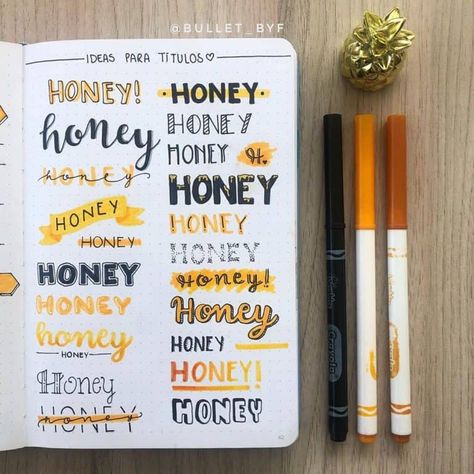 @BULLET_BYF
IDEAS PARA TÍTULOS♡
HONEY!
honey
HONEY
honey
HONEY
HONEY
HONEY
HONEY
honey
HONEY
Honey
HONEY
honey
·HONEY·
HONEY
HONEY H.
HONEY
HONEY
HONEY
Honey!
Honey
HONEY
HONEY!
HONEY
Crayola